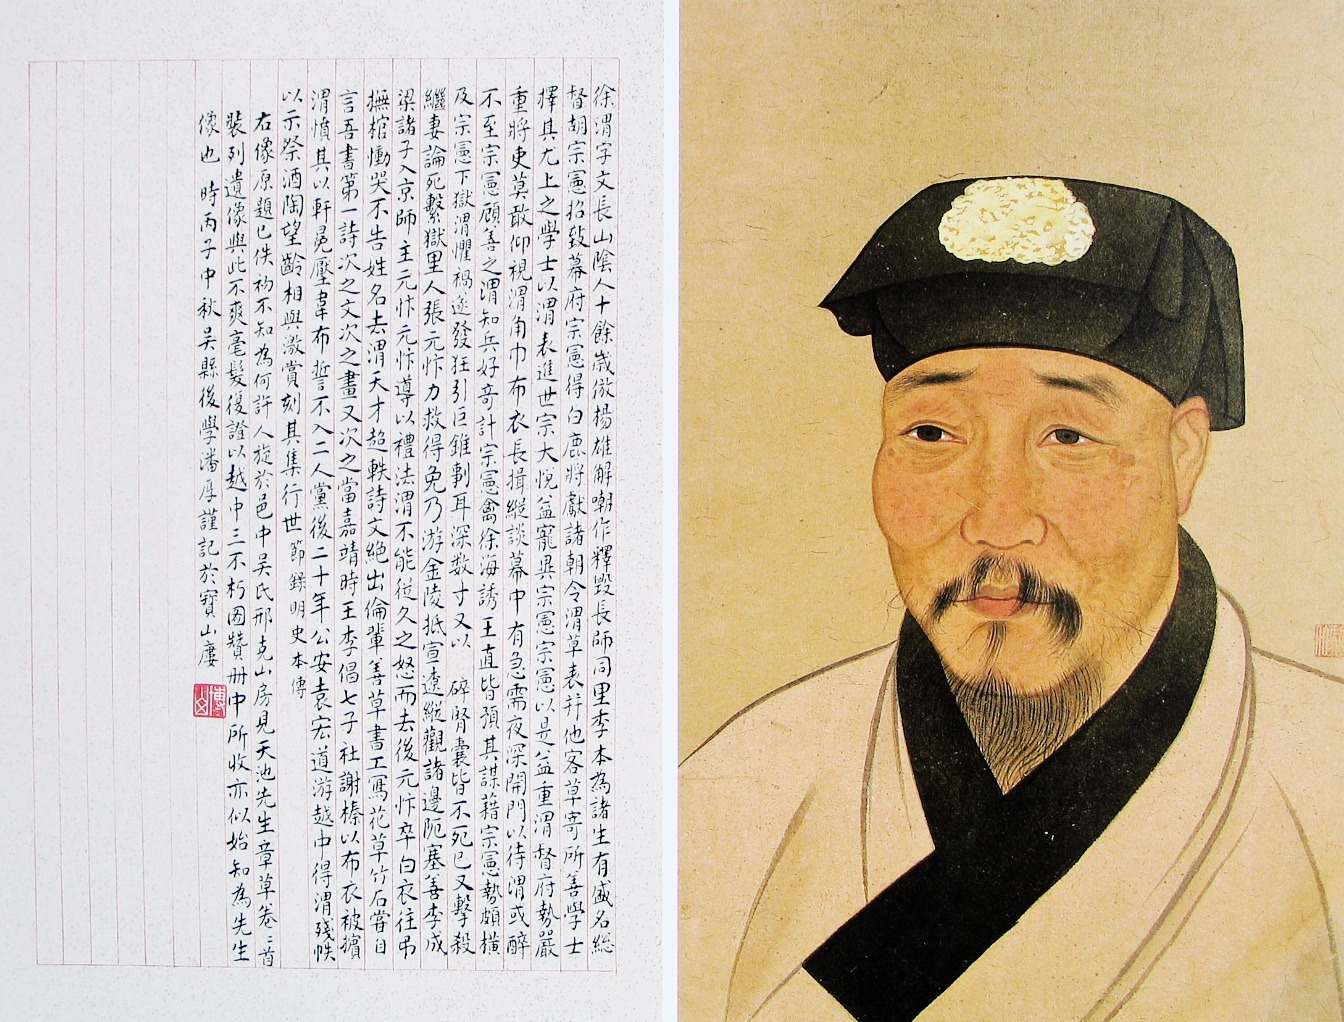 徐渭字文長山陰人十餘歲倣楊雄解嘲作釋毀長師同里季本為諸生有盛名総
督胡宗憲招致幕府宗憲得白鹿將獻諸朝令渭草表并他客草寄所善學士
擇其尤上之學士以渭表進世宗大悅益寵異宗憲宗憲以是益重渭督府勢嚴
重將吏莫敢仰視渭角巾布衣長揖縱談幕中有急需夜深開門以待渭或醉
不至宗憲顧善之渭知兵好奇計宗憲禽徐海誘王直皆預其謀藉宗憲勢頗橫
及宗憲下獄渭懼禍遂發狂引巨錐剚耳深数寸又以 碎腎囊皆不死已又擊殺
繼妻論死繫獄里人張元忭力救得免乃游金陵抵宣遼縱觀諸邊阨塞善李成
梁諸子入京師主元忭元忭導以禮法渭不能從久之怒而去後元忭卒白衣往弔
撫棺慟哭不告姓名去渭天才超軼詩文絕出倫輩善草書工寫花草竹石嘗自
言吾書第一詩次之文次之畫又次之當嘉靖時王李倡七子社謝榛以布衣被擯
渭憤其以軒冕壓韋布誓不入二人黨後二十年公安袁宏道游越中得渭殘帙
以示祭酒陶望齡相與激賞刻其集行世 節錄明史本傳
右像原題已佚初不知為何許人旋於邑中吴氏邢克山房見天池先生章草卷二首
裝列遺像與此不爽毫髮復證以越中三不朽圖贊冊中所收亦似始知為先生
像也 時丙子中秋吴縣後學潘厚謹記於寶山廔
博山